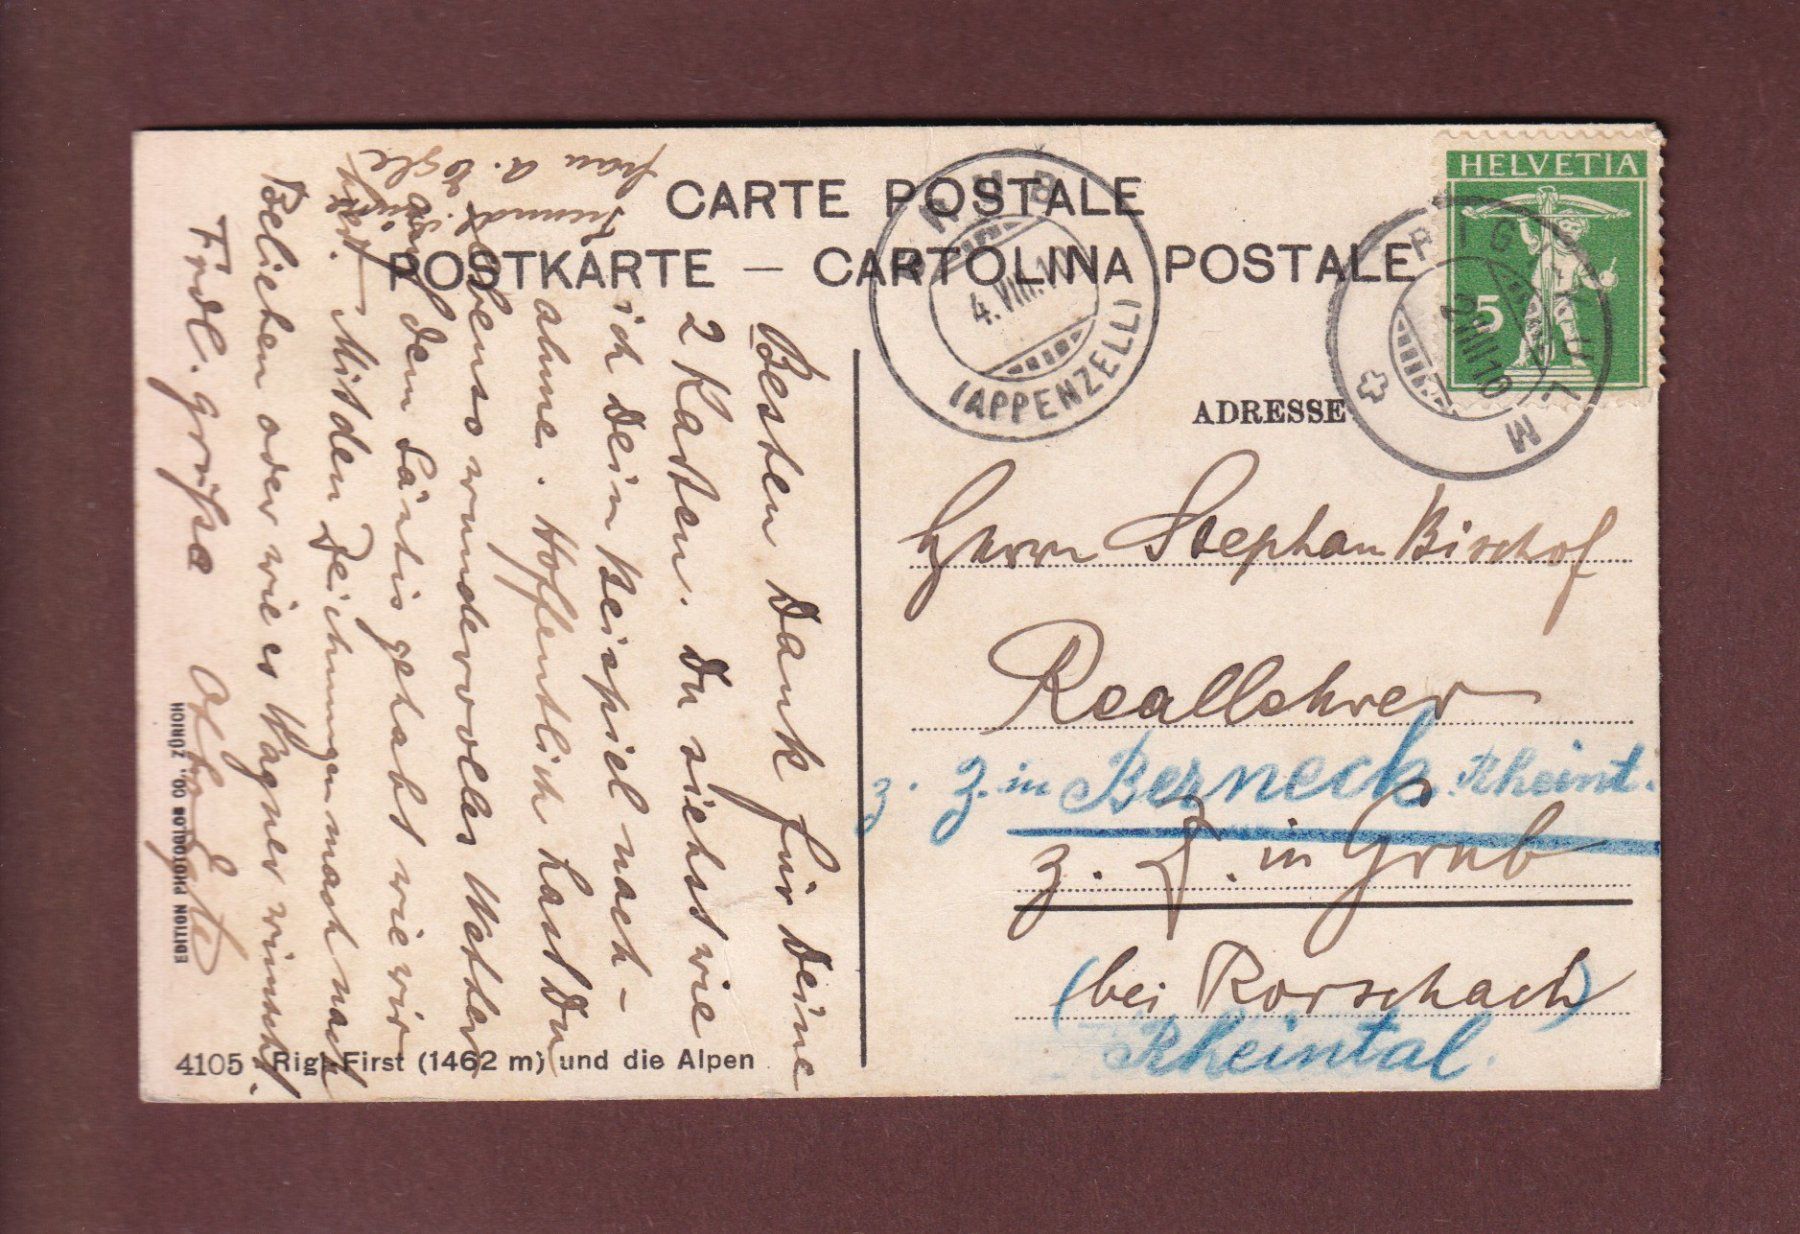 CARTE POSTALE
POSTKARTE — CARTOLINA POSTALE
HELVETIA
5
GRUB
4.VIII.10
(APPENZELL)
RIGI
2 VIII 10
ADRESSE
Herrn Stephan Bischof
Reallehrer
z. Z. in Berneck Rheint.
z. Z. in Grub
(bei Rorschach)
Rheintal.
Besten Dank für Deine
2 Karten. Du siehst wie
ich Dein Beispiel nach-
ahme. Hoffentlich hast Du
ebenso wundervolles Wetter
auf dem Säntis gehabt wie wir
hier. Mit den Zeichnungen mach nach
Belieben oder wie es Wagner wünscht.
Frdl. Grüsse
Otto Egle
frau A. Egle
EDITION PHOTOGLOB CO., ZÜRICH
4105 Rigi-First (1462 m) und die Alpen